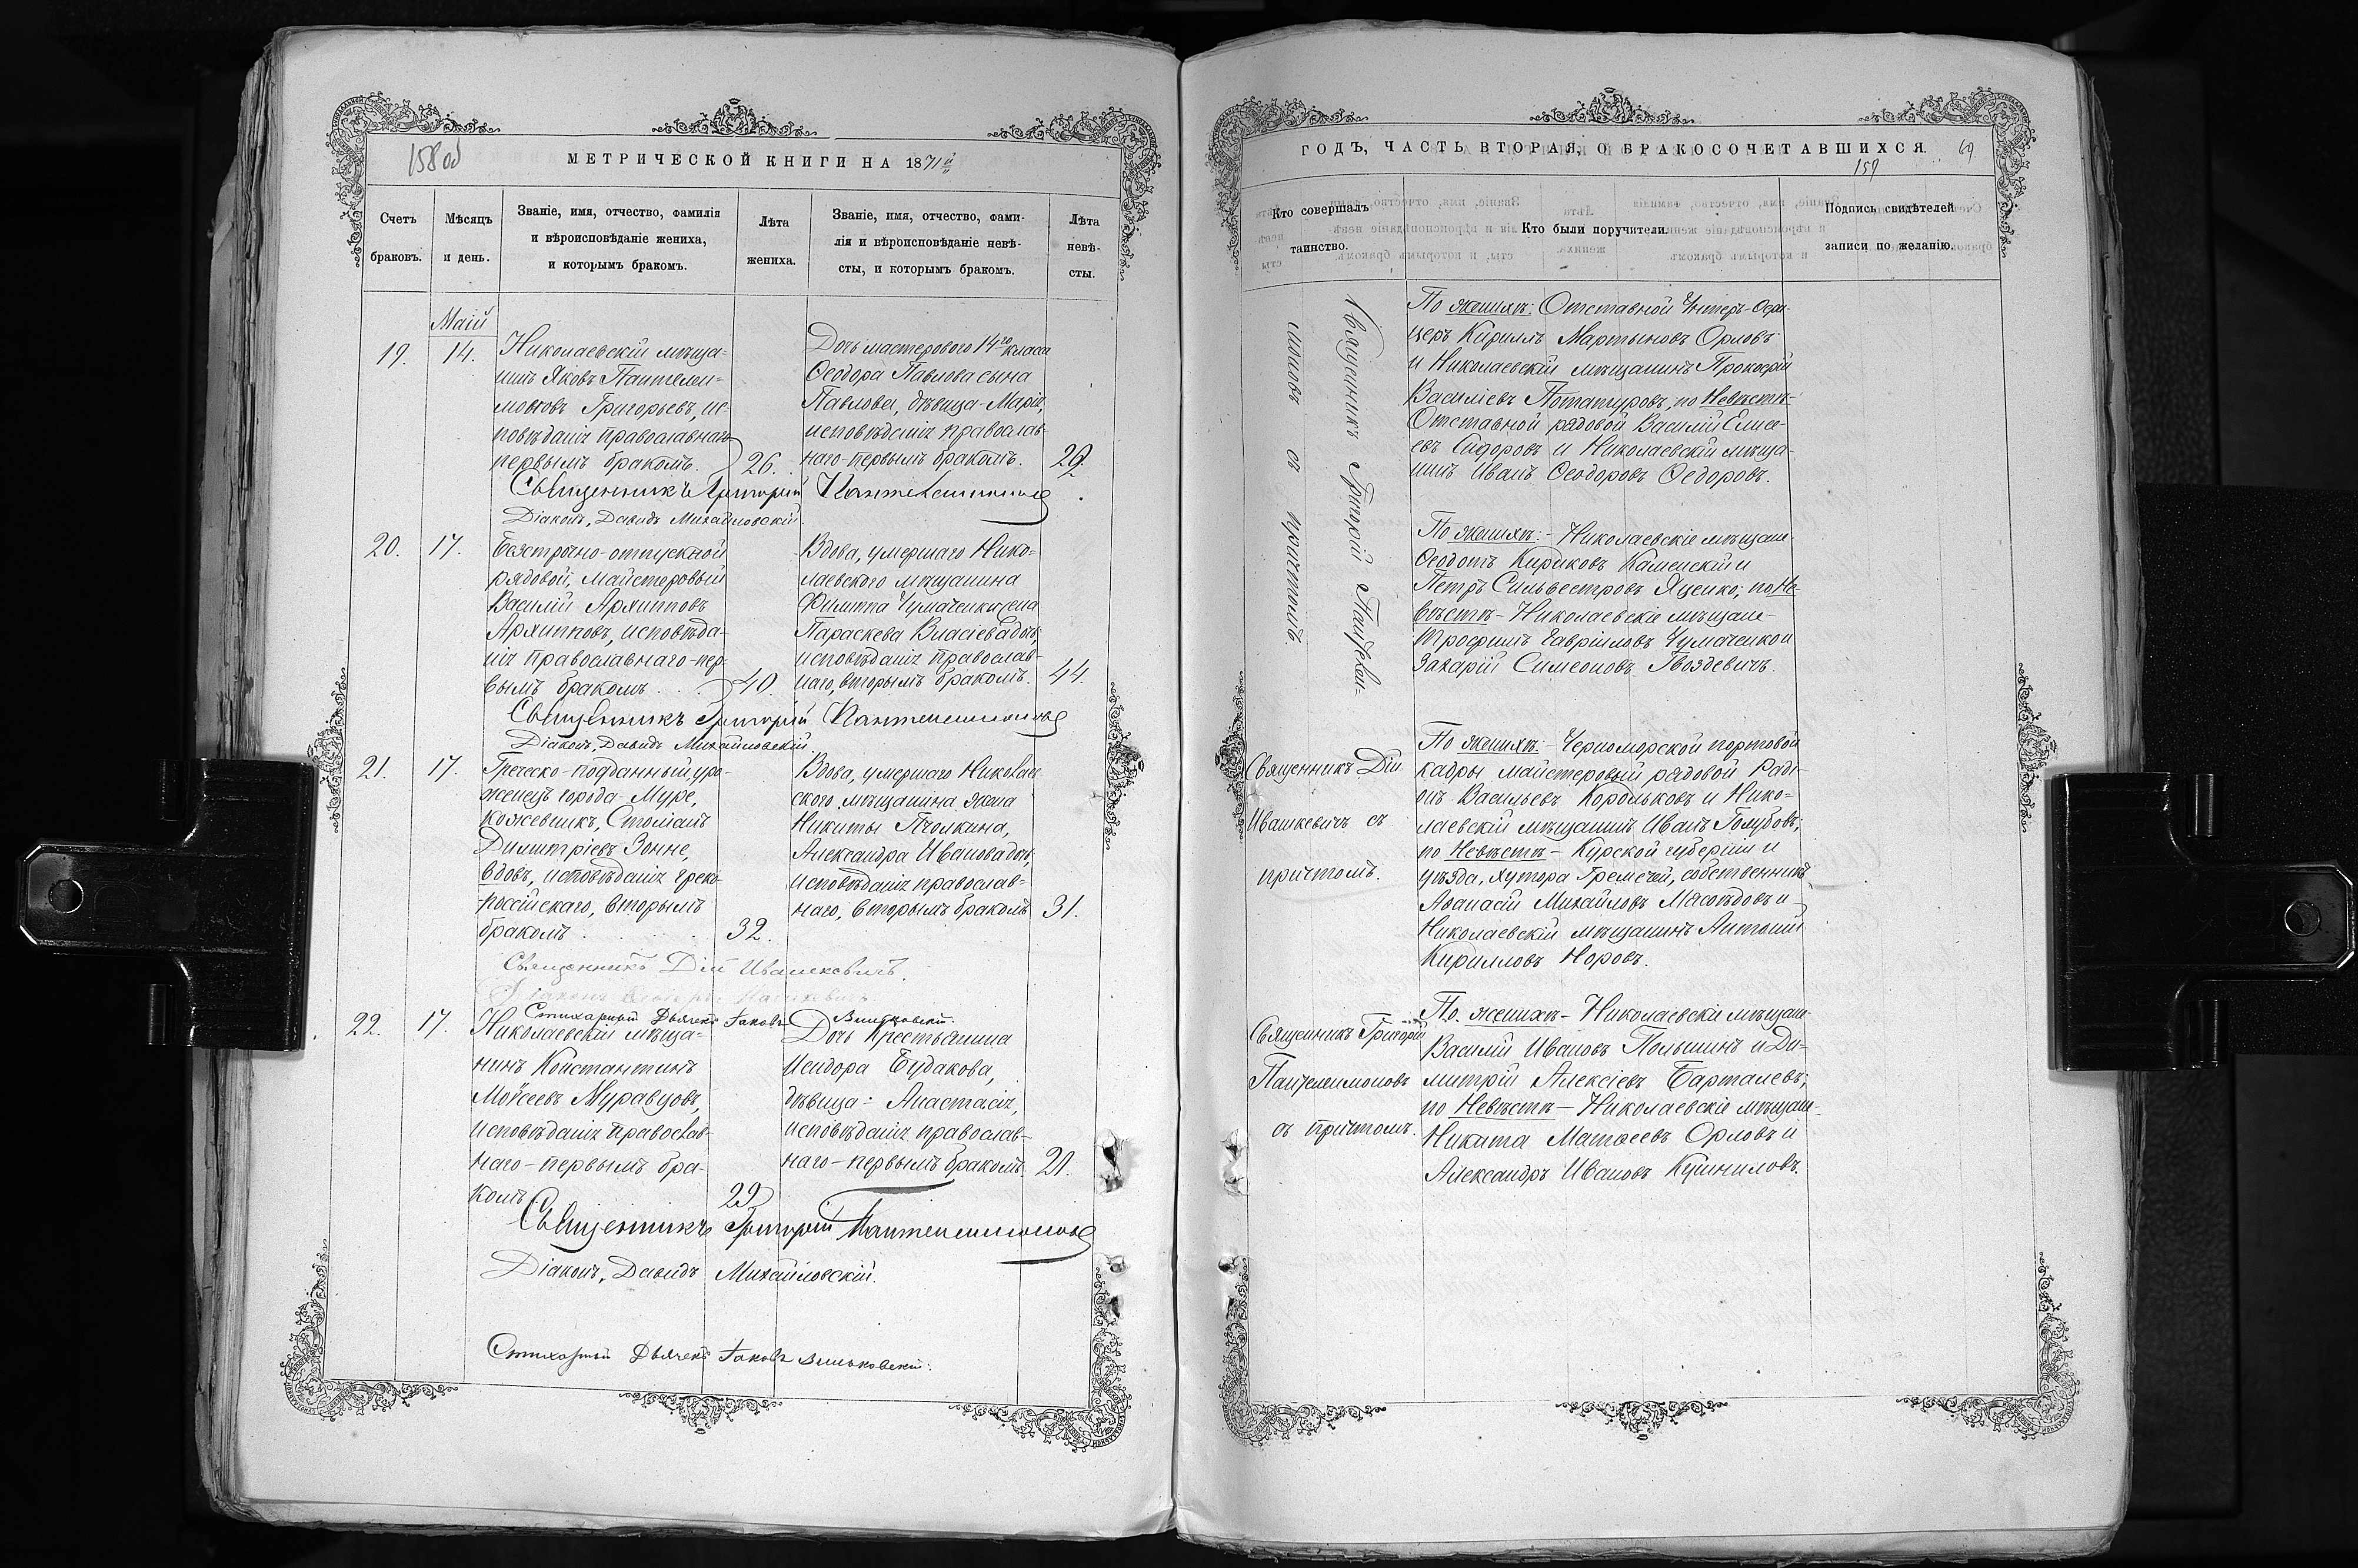 158 об
МЕТРИЧЕСКОЙ КНИГИ НА 1871й
Счетъ
браковъ.
Мѣсяцъ
и день.
Званіе, имя, отчество, фамилія
и вѣроисповѣданіе жениха,
и которымъ бракомъ.
Лѣта
жениха.
Званіе, имя, отчество, фами-
лія и вѣроисповѣданіе невѣ-
сты, и которымъ бракомъ.
Лѣта
невѣ-
сты.
Маій
19.
14.
Николаевскій мѣща-
нинъ Яковъ Пантелеи-
моновъ Григорьевъ, ис-
повѣданія православнаго
первымъ бракомъ.
26.
Дочь мастероваго 14го класса
Ѳеодора Павлова сына
Павлова, дѣвица Марія,
исповѣданія православ-
наго-первымъ бракомъ.
29.
Священникъ Григорій Пантелеимоновъ
Діаконъ, Давидъ Михайловскій.
20.
17.
Безсрочно-отпускной
рядовой, Майстеровый
Василій Архиповъ
Архиповъ, исповѣда-
нія православнаго-пер-
вымъ бракомъ.
40.
Вдова, умершаго Нико-
лаевскаго мѣщанина
Филиппа Чумаченки жена
Параскева Власіева дочь,
исповѣданія православ-
наго, вторымъ бракомъ.
44.
Священникъ Григорій Пантелеимоновъ
Діаконъ, Давидъ Михайловскій.
21.
17.
Греческо-подданный, уро-
женецъ города Муре,
кожевникъ, Стоманъ
Димитріевъ Зонне,
вдовъ, исповѣданія греко-
россійскаго, вторымъ
бракомъ
32.
Вдова, умершаго Николаев-
скаго мѣщанина жена
Никиты Пчолкина,
Александра Иванова дочь,
исповѣданія православ-
наго, вторымъ бракомъ
31.
Священникъ Дій Ивашкевичъ.
Стихарный Дьячекъ Іаковъ
22.
17.
Николаевскій мѣща-
нинъ Константинъ
Моѵсеевъ Муравцовъ,
исповѣданія православ-
наго-первымъ бра-
комъ.
22
Дочь Крестьянина
Исидора Будакова,
дѣвица-Анастасія,
исповѣданія православ-
наго-первымъ бракомъ
21.
Священникъ Григорій Пантелеимоновъ
Діаконъ, Давидъ Михайловскій.
Стихарный Дьячекъ Іаковъ
ГОДЪ, ЧАСТЬ ВТОРАЯ, О БРАКОСОЧЕТАВШИХСЯ
69
159
Кто совершалъ
таинство.
Кто были поручители.
Подпись свидѣтелей
записи по желанію.
Священникъ Григорій Пантелеи-
моновъ съ причтомъ.
По женихѣ: Отставной Унтеръ-Офи-
церъ Кириллъ Мартыновъ Орловъ
и Николаевскій мѣщанинъ Прокофій
Василіевъ Потатуровъ, по Невѣстѣ-
Отставной рядовой Василій Елисе-
евъ Сидоровъ и Николаевскій мѣща-
нинъ Иванъ Ѳеодоровъ Ѳедоровъ.
По женихѣ:-Николаевскіе мѣщане-
Ѳеодотъ Кириковъ Каменскій и
Петръ Сильвестровъ Яценко; по Не-
вѣстѣ-Николаевскіе мѣщане-
Трофимъ Гавріиловъ Чумаченко и
Захарій Симеоновъ Гвоздевичъ.
Священникъ Дій
Ивашкевичъ съ
причтомъ.
По женихѣ:-Черноморской портовой
кадры майстеровый рядовой Раді-
онъ Васильевъ Корольковъ и Нико-
лаевскій мѣщанинъ Иванъ Голубовъ,
по Невѣстѣ-Курской губерніи и
уѣзда, хутора Гремячей, собственникъ
Аѳанасій Михайловъ Мясоѣдовъ и
Николаевскій мѣщанинъ Антоній
Кирилловъ Норовъ.
Священникъ Григорій
Пантелеимоновъ
съ причтомъ.
По женихѣ-Николаевскіе мѣщане
Василій Ивановъ Полынинъ и Ди-
митрій Алексіевъ Барталевъ;
по Невѣстѣ-Николаевскіе мѣщане-
Никита Матѳеевъ Орловъ и
Александръ Ивановъ